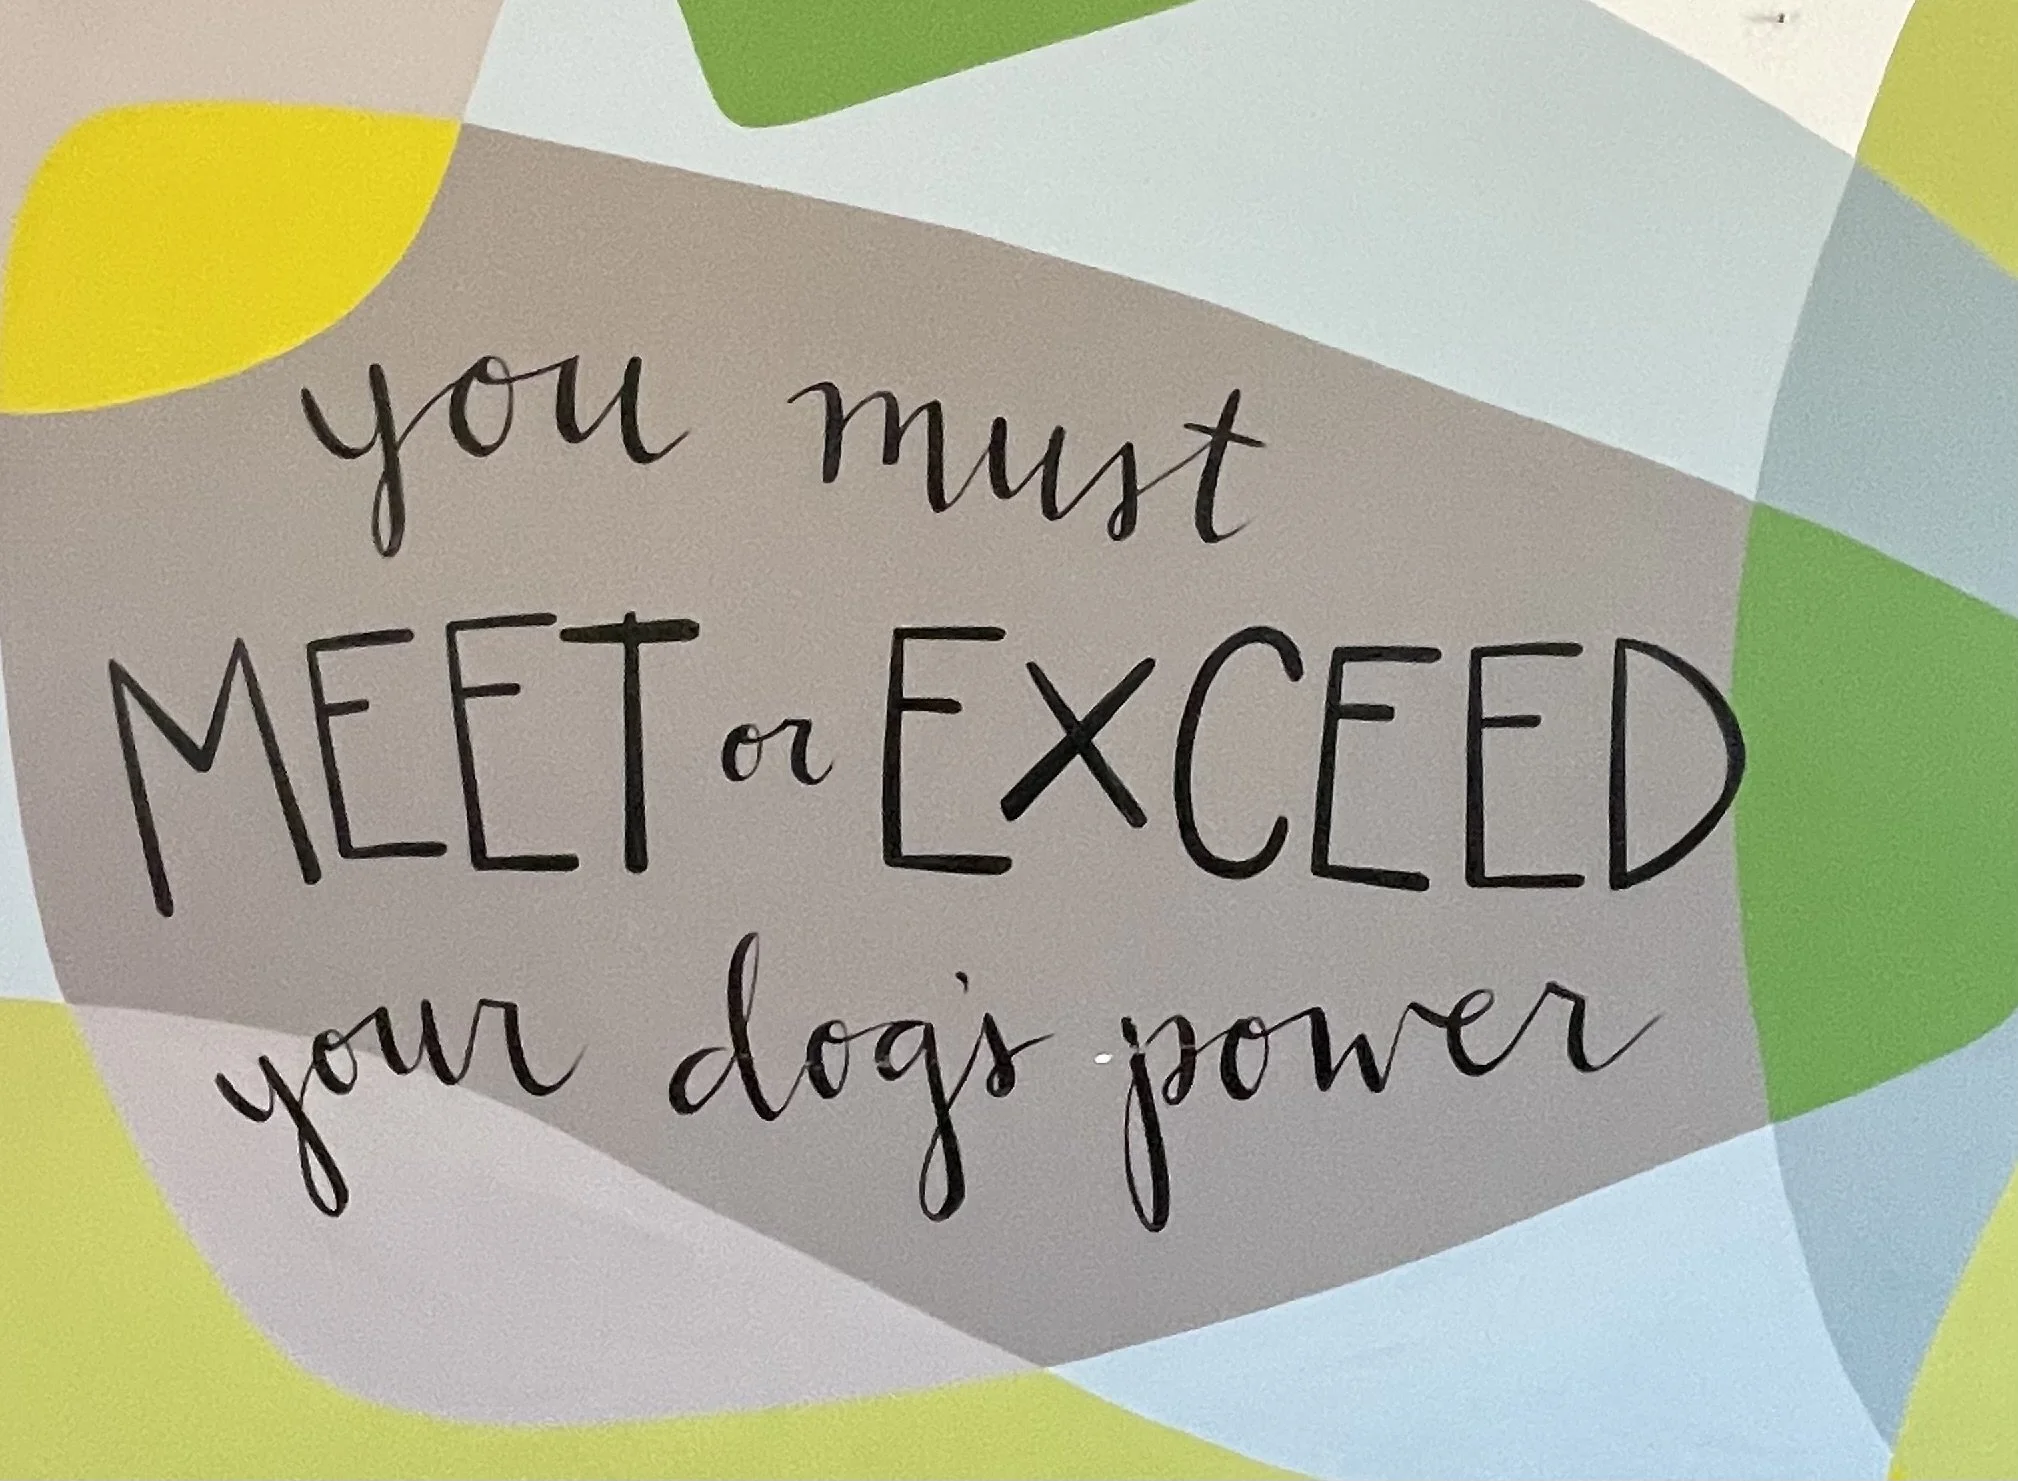 you must
MEET or EXCEED
your dog's power